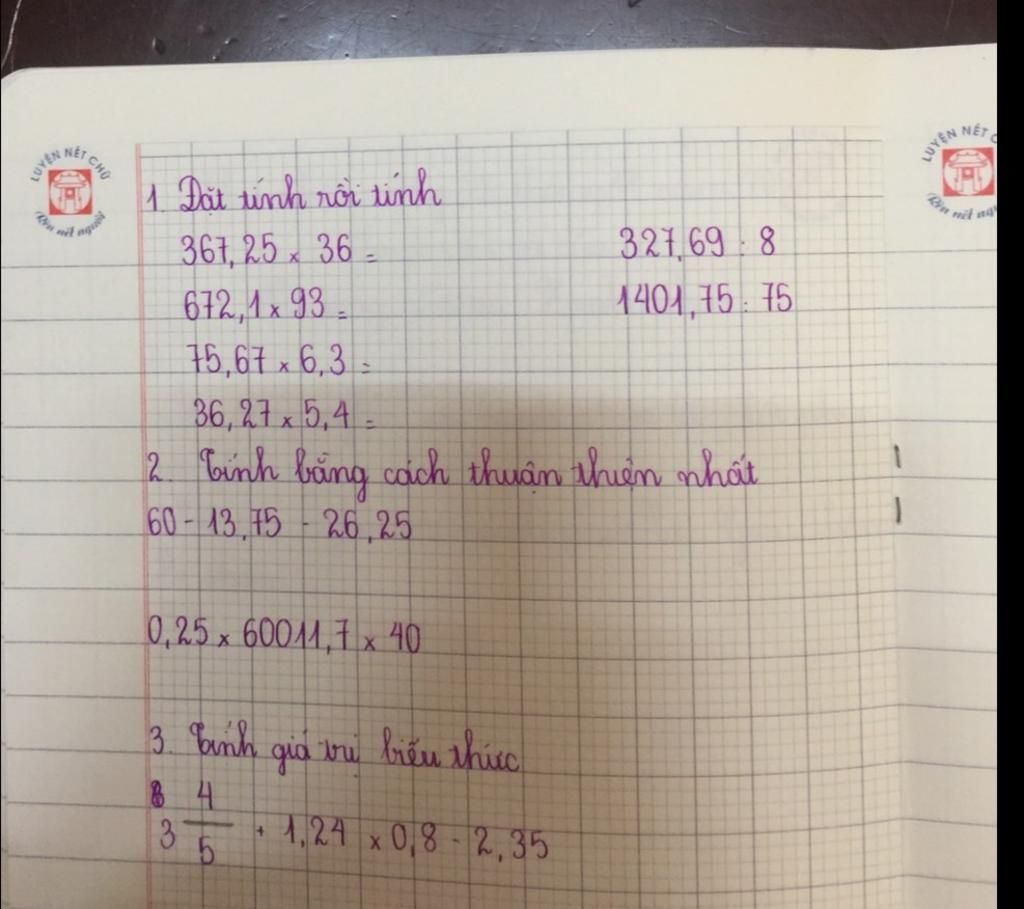 LUYỆN NÉT CHỮ
Rèn nết người
LUYỆN NÉT
Rèn nết
1. Đặt tính rồi tính
367,25 x 36 = 327,69 : 8
672,1 x 93 = 1401,75 : 75
75,67 x 6,3 =
36,27 x 5,4 =
2. Tính bằng cách thuận thiện nhất
60 - 13,75 - 26,25
0,25 x 60011,7 x 40
3. Tính giá trị biểu thức
3 4/5 + 1,24 x 0,8 - 2,35